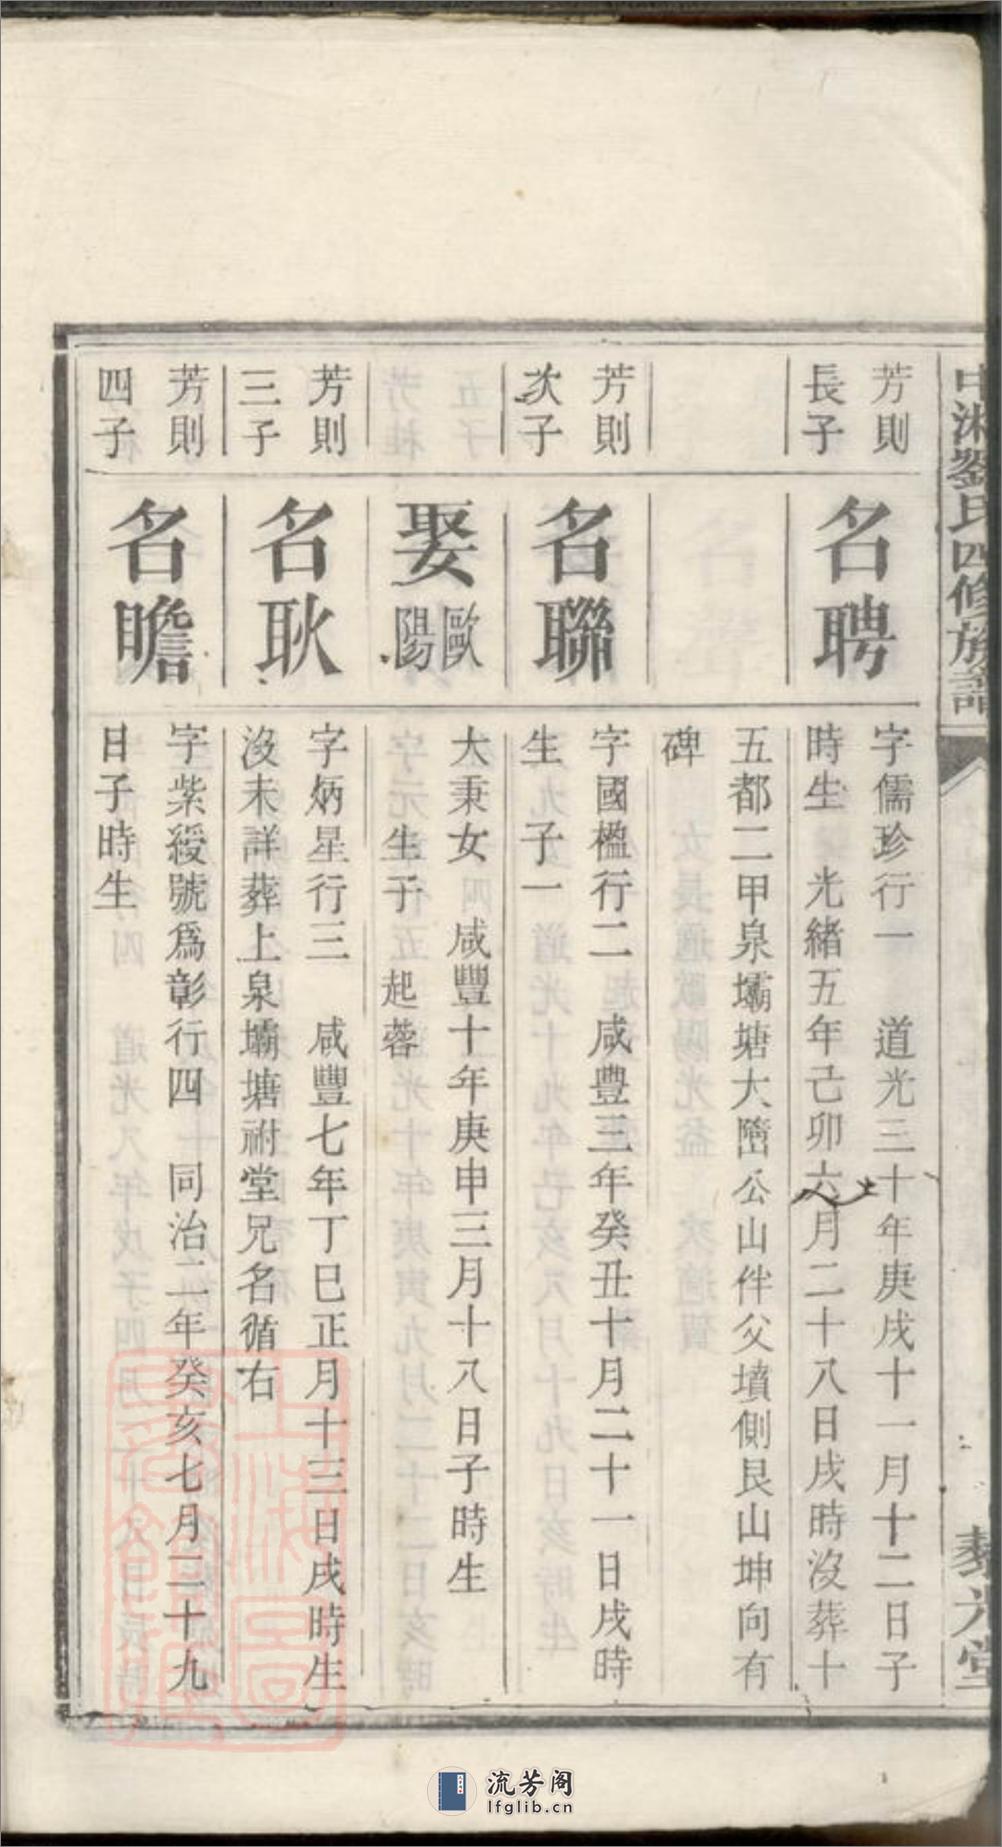 中湘劉氏四修族譜
藜光堂
芳則
長子
名聘
字儒珍行一 道光三十年庚戌十一月十二日子
時生 光緒五年己卯六月二十八日戌時沒葬十
五都二甲泉壩塘大㙮公山伴父墳側艮山坤向有
碑
芳則
次子
名聯
字國楹行二 咸豐三年癸丑十月二十一日戌時
生 子一
娶歐陽
大秉女 咸豐十年庚申三月十八日子時生
生子 起蓉
芳則
三子
名耿
字炳星行三 咸豐七年丁巳正月十三日戌時生
沒未詳葬上泉壩塘祔堂兄名循右
芳則
四子
名瞻
字紫綬號為彰行四 同治二年癸亥七月二十九
日子時生
上海圖書館藏
流芳阁
lfglib.cn